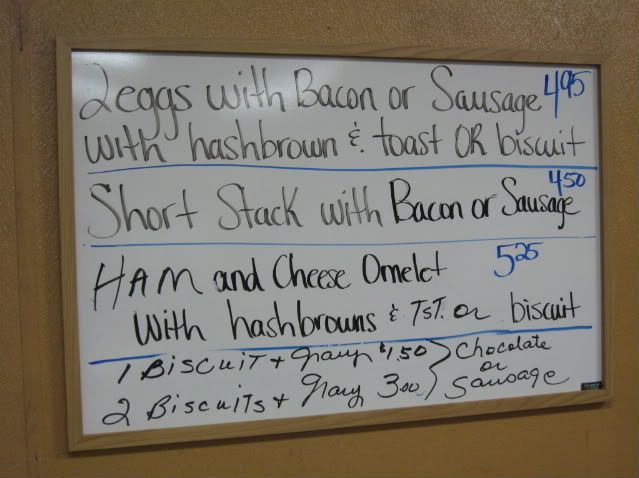 2 eggs with Bacon or Sausage 495
with hashbrown & toast OR biscuit
Short Stack with Bacon or Sausage 450
HAM and Cheese Omelet 525
with hashbrowns & TST. or biscuit
1 Biscuit + gravy $1.50 } Chocolate
or
2 Biscuits + gravy 3.00 Sausage